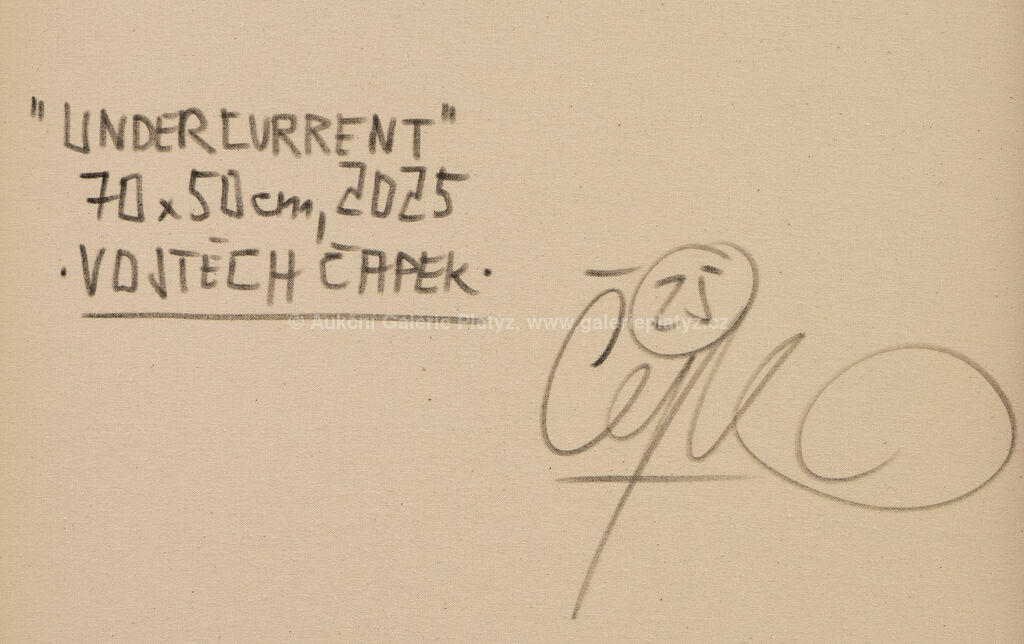 "UNDERCURRENT"
70x50cm, 2025
·VOJTĚCH ČAPEK·
25
© Aukční Galerie Platýz, www.galerieplatyz.cz